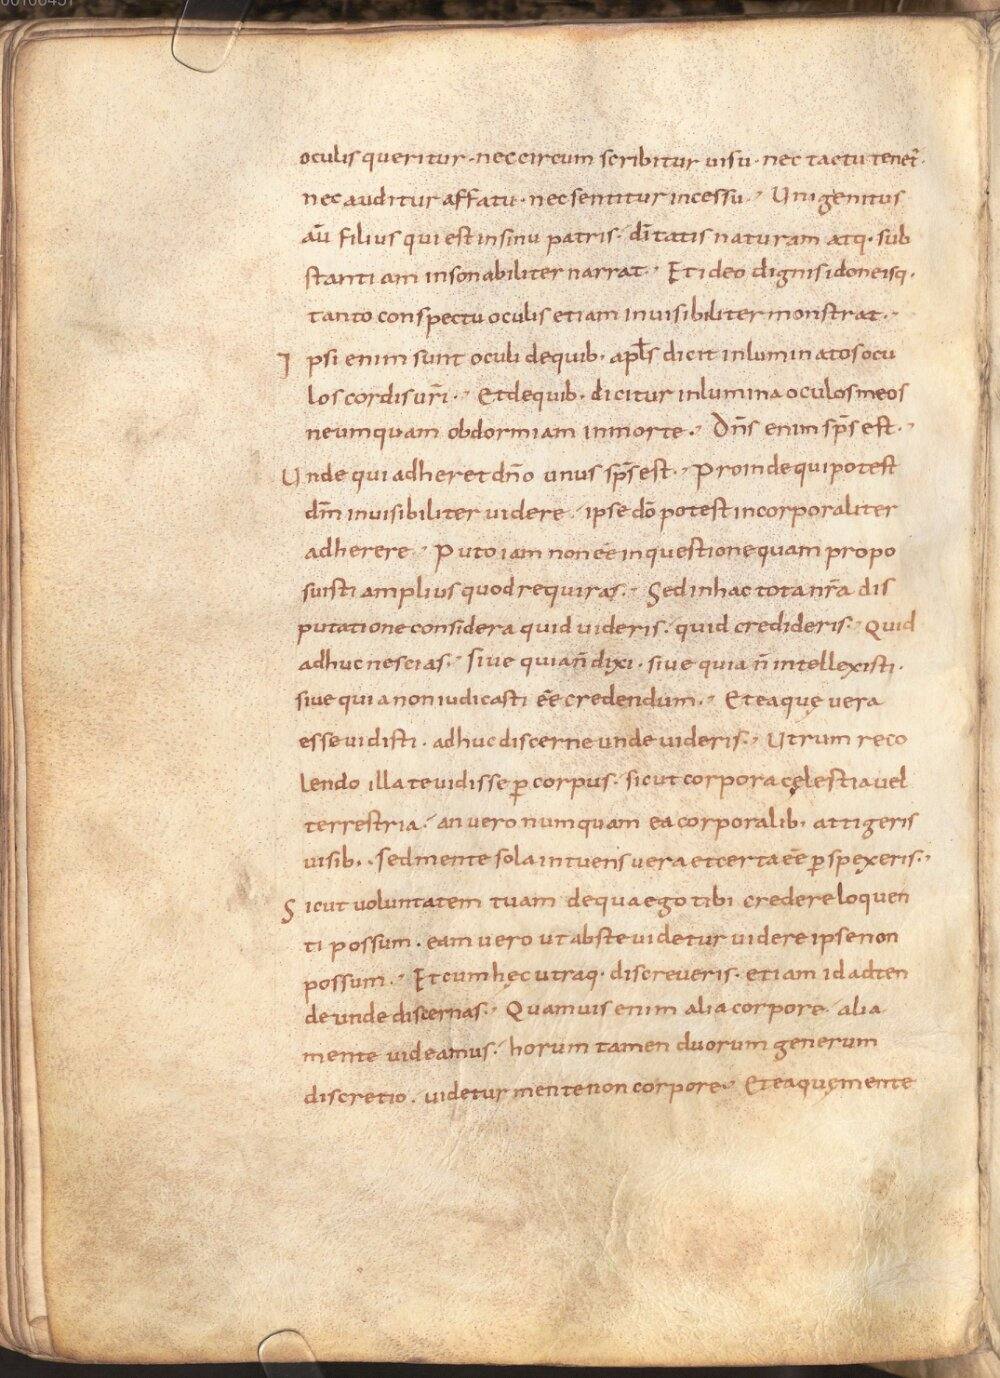 oculis queritur · nec circum scribitur uisu · nec tactu tenet̄ ·
nec auditur affatu · nec sentitur incessu · Unigenitus
aū filius qui est in sinu patris · dītatis naturam atq· sub
stantiam insonabiliter narrat · Et ideo dignis idoneisq·
tanto conspectu oculis etiam inuisibiliter monstrat ·
Ipsi enim sunt oculi de quib· apls̄ dicit inluminatos ocu
los cordis ur̄i · Et de quib· dicitur inlumina oculos meos
ne umquam obdormiam in morte · Dn̄s enim sp̄s est ·
Unde qui adheret dn̄o unus sp̄s est · Proinde qui potest
dm̄ inuisibiliter uidere · ipse dō potest incorporaliter
adherere · Puto iam non eē in questione quam propo
suisti amplius quod requiras · Sed in hac tota nr̄a dis
putatione considera quid uideris · quid credideris · Quid
adhuc nescias · siue quia n̄ dixi · siue quia n̄ intellexisti ·
siue quia non iudicasti eē credendum · Et ea quę uera
esse uidisti · adhuc discerne unde uideris · Utrum reco
lendo illa te uidisse ꝑ corpus · sicut corpora cęlestia uel
terrestria · an uero numquam ea corporalib· attigeris
uisib· · sed mente sola intuens uera et certa eē ꝑspexeris ·
Sicut uoluntatem tuam de qua ego tibi credere loquen
ti possum · eam uero ut abs te uidetur uidere ipse non
possum · Et cum hęc utraq· discreueris · etiam id adten
de unde discernas · Quamuis enim alia corpore · alia
mente uideamus · horum tamen duorum generum
discretio · uidetur mente non corpore · Et ea quę mente